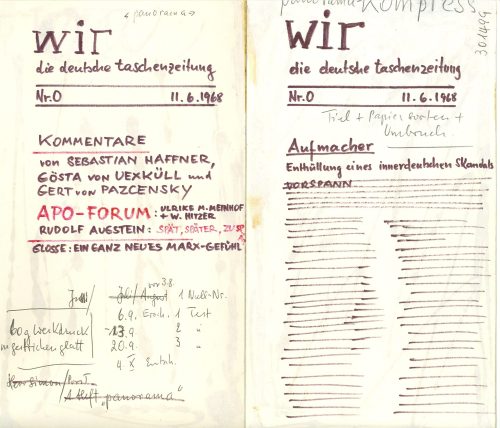 "panorama"
wir
die deutsche taschenzeitung
Nr.0 11.6.1968
KOMMENTARE
von SEBASTIAN HAFFNER,
GÖSTA von UEXKÜLL und
GERT von PAZCENSKY
APO-FORUM: ULRIKE M. MEINHOF
+ W. HITZER
RUDOLF AUGSTEIN: SPÄT, SPÄTER, ZU SPÄ
GLOSSE: EIN GANZ NEUES MARX-GEFÜHL
vor 3.8
Juli/August 1 Null-Nr.
6.9. Ersch. 1 Test
60g Werkdruck 13.9. 2 "
ungestrichen glatt 20.9. 3 "
4 X
1 Heft "panorama"
panorama Kompress
301499
wir
die deutsche taschenzeitung
Nr.0 11.6.1968
Titel + Papier sorten +
Umbruch
Aufmacher
Enthüllung eines innerdeutschen Skandals
VORSPANN